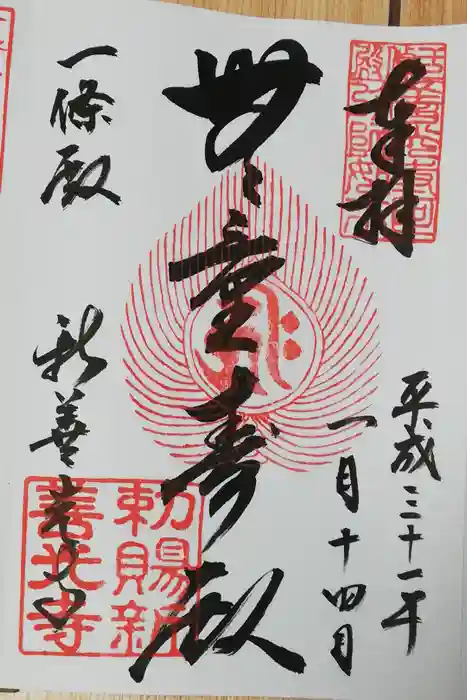 奉拝
平成三十一年
一月十四日
無量寿殿
一條殿
新善光寺
勅賜新
善光寺